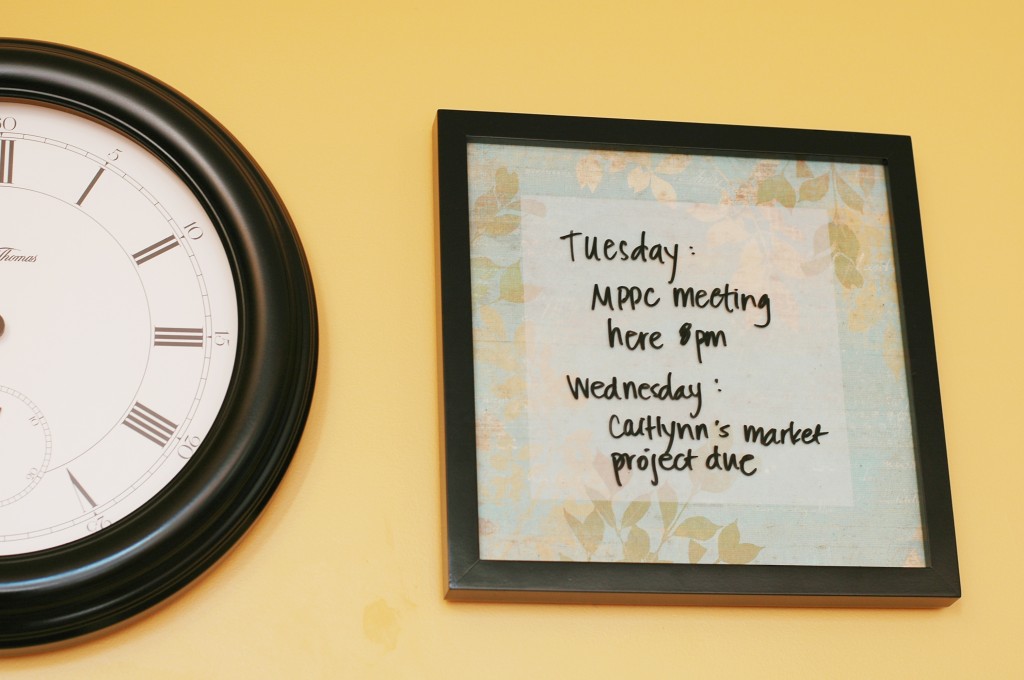 60
5
10
15
20
25
XII
I
II
III
IIII
V
Thomas
Tuesday:
MPPC meeting
here 8pm
Wednesday:
Caitlynn's market
project due